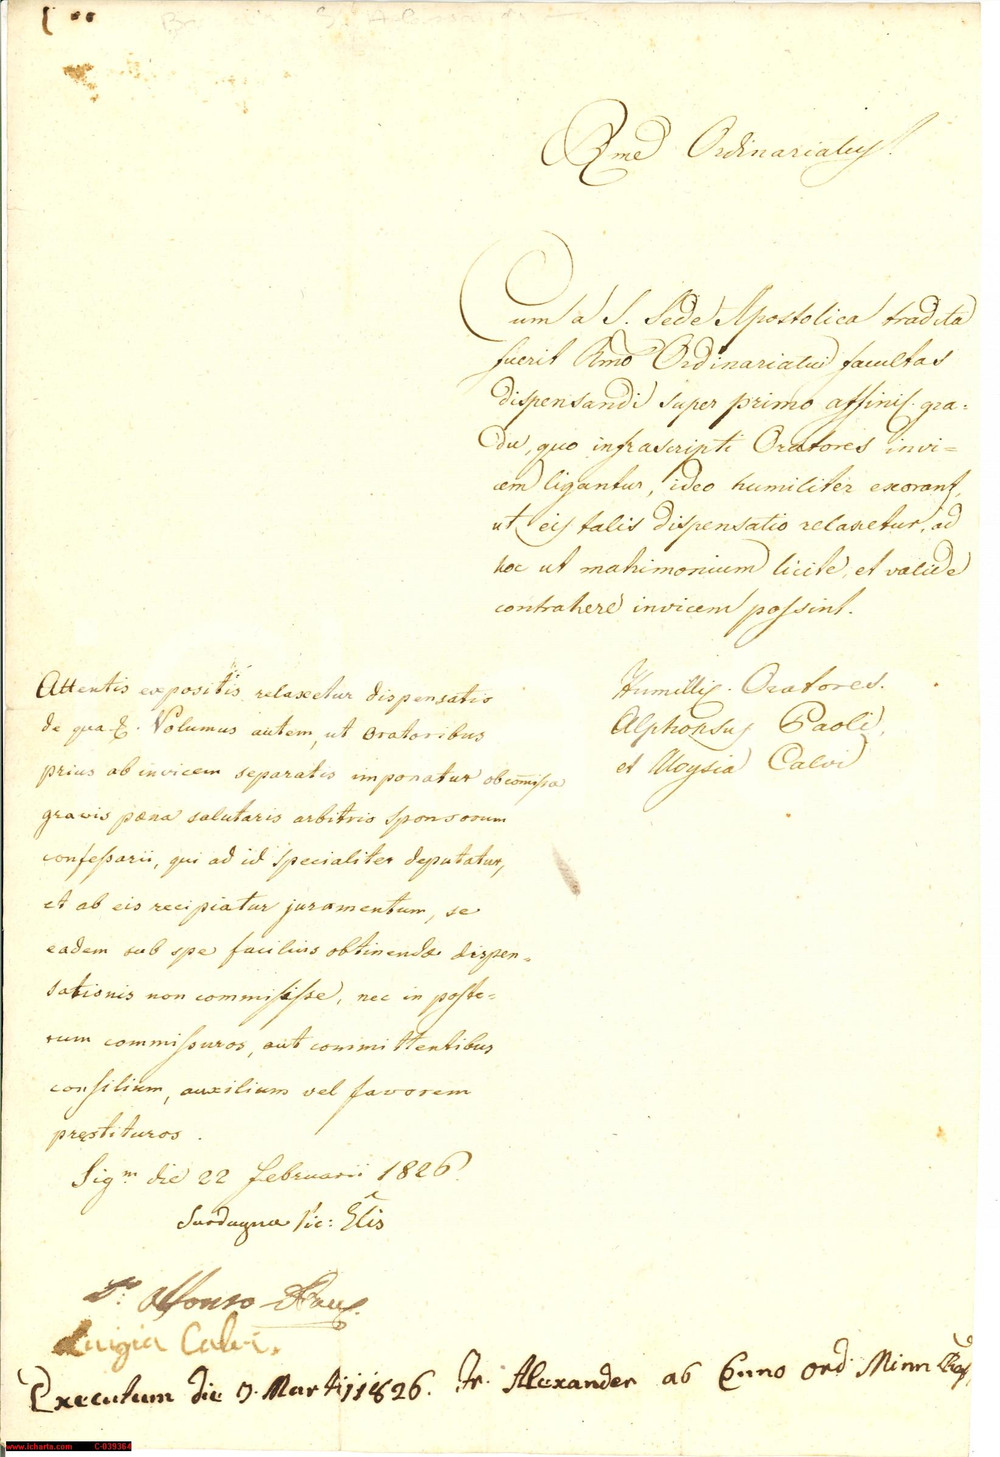 Rme Ordinariatus!
Cum a S. Sede Apostolica tradita
fuerit Rmo Ordinariatui facultas
dispensandi super primo affinis. gra=
du, quo infrascripti Oratores invi=
cem ligantur, ideo humiliter exorant,
ut eis talis dispensatio relaxetur, ad
hoc ut matrimonium licite, et valide
contrahere invicem possint.
Humillis. Oratores.
Alphonsus Paoli,
et Aloysia Calvi
Attentis expositis relaxetur dispensatio
de qua &. Volumus autem, ut Oratoribus
prius ab invicem separatis imponatur ob comissa
gravis pœna salutaris arbitrio sponsorum
confessarii, qui ad id specialiter deputatur,
et ab eis recipiatur juramentum, se
eadem sub spe facilius obtinendæ dispen=
sationis non commisisse, nec in poste=
rum commissuros, aut committentibus
consilium, auxilium vel favorem
prestituros.
Sigm die 22 Februarii 1826.
Sardagna Vic: Glis
Alfonso
Luigia Calvi.
Executum die 7. Martij 1826. Fr. Alexander ab Enno Ord Minn
www.icharta.com C-039364